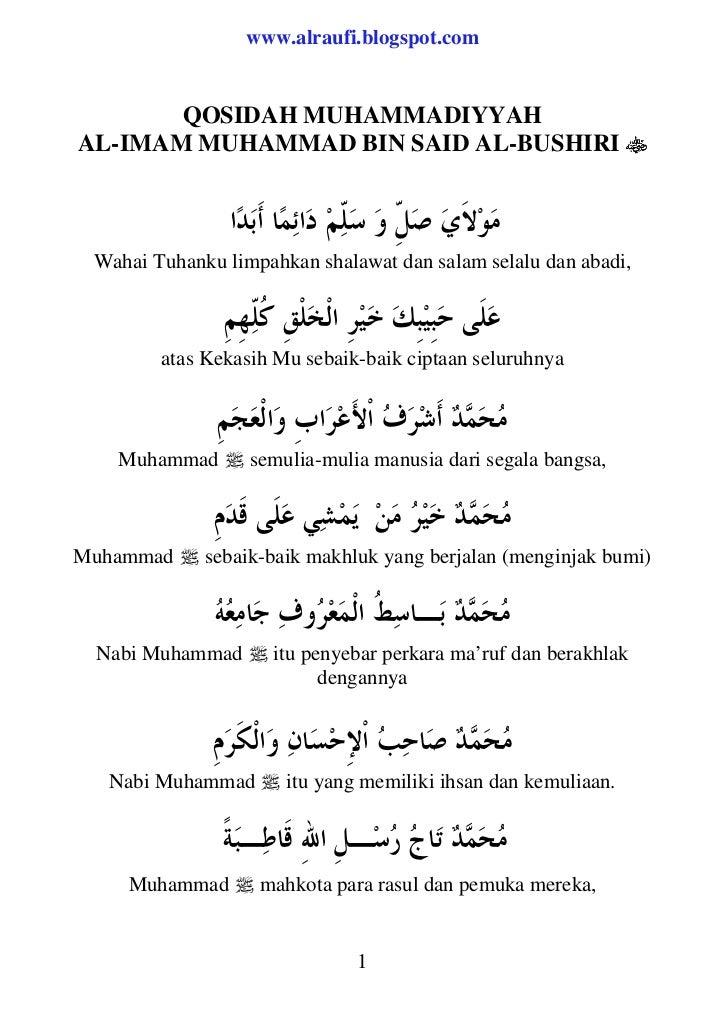 www.alraufi.blogspot.com
QOSIDAH MUHAMMADIYYAH
AL-IMAM MUHAMMAD BIN SAID AL-BUSHIRI
مَوْلَايَ صَلِّ وَ سَلِّمْ دَائِمًا أَبَدًا
Wahai Tuhanku limpahkan shalawat dan salam selalu dan abadi,
عَلَى حَبِيْبِكَ خَيْرِ الْخَلْقِ كُلِّهِمِ
atas Kekasih Mu sebaik-baik ciptaan seluruhnya
مُحَمَّدٌ أَشْرَفُ اْلأَعْرَابِ وَالْعَجَمِ
Muhammad ﷺ semulia-mulia manusia dari segala bangsa,
مُحَمَّدٌ خَيْرُ مَنْ يَمْشِي عَلَى قَدَمِ
Muhammad ﷺ sebaik-baik makhluk yang berjalan (menginjak bumi)
مُحَمَّدٌ بَـــاسِطُ الْمَعْرُوفِ جَامِعُهُ
Nabi Muhammad ﷺ itu penyebar perkara ma’ruf dan berakhlak
dengannya
مُحَمَّدٌ صَاحِبُ اْلإِحْسَانِ وَالْكَرَمِ
Nabi Muhammad ﷺ itu yang memiliki ihsan dan kemuliaan.
مُحَمَّدٌ تَاجُ رُسْـــلِ اللهِ قَاطِـــبَةً
Muhammad ﷺ mahkota para rasul dan pemuka mereka,
1